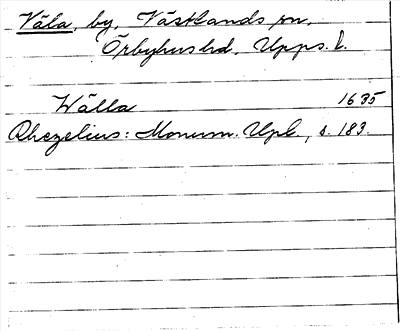 Våla, by, Västlands sn,
Örbyhus hd, Upps. l.
Wålla 1635
Rhezelius: Monum. Upl., s. 183.